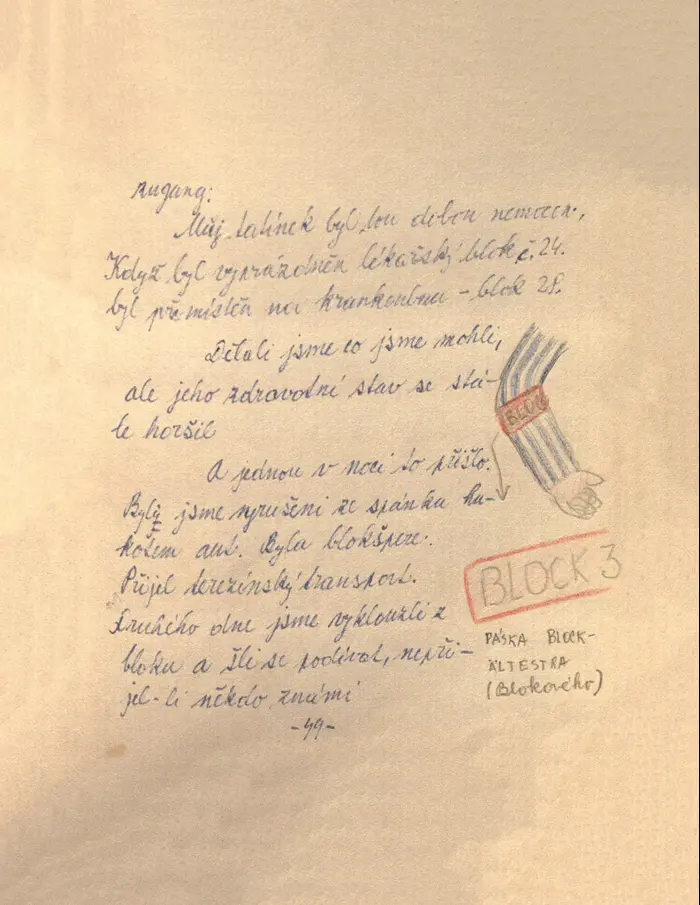 zugang:
Můj tatínek byl tou dobou nemocen,
Když byl vyprázdněn lékařský blok č. 24.
byl přemístěn na krankenbau - blok 28.
Dělali jsme co jsme mohli,
ale jeho zdravotní stav se stá-
le horšil
A jednou v noci to přišlo.
Byly jsme vyrušeni ze spánku ha-
kotem aut. Byla blokšpere.
Přijel terezínský transport.
Druhého dne jsme vyklouzli z
bloku a šli se podívat, nepři-
jel-li někdo známi
-49-
BLOCK
BLOCK 3
PÁSKA BLOCK-
ÄLTESTRA
(Blokového)